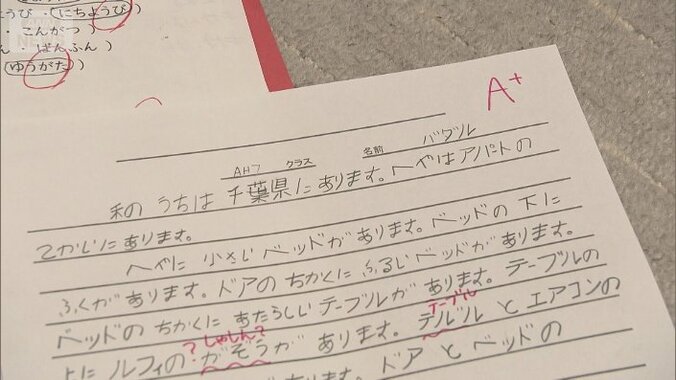 うび・にちようび)
・こんがつ)
ばんふん)
ゆうがた)
A+
AH7 クラス 名前 バダル
私のうちは千葉県にあります。へやはアパートの
2かいにあります。
へやに小さいベッドがあります。ベッドの下に
ふくがあります。ドアのちかくにふるいベッドがあります。
ベッドのちかくにあたらしいテーブルがあります。テーブルの
?しゃしん? テーブル
上にルフィの・がぞうがあります。テルビルとエアコンの
あります。ドアとベッドの